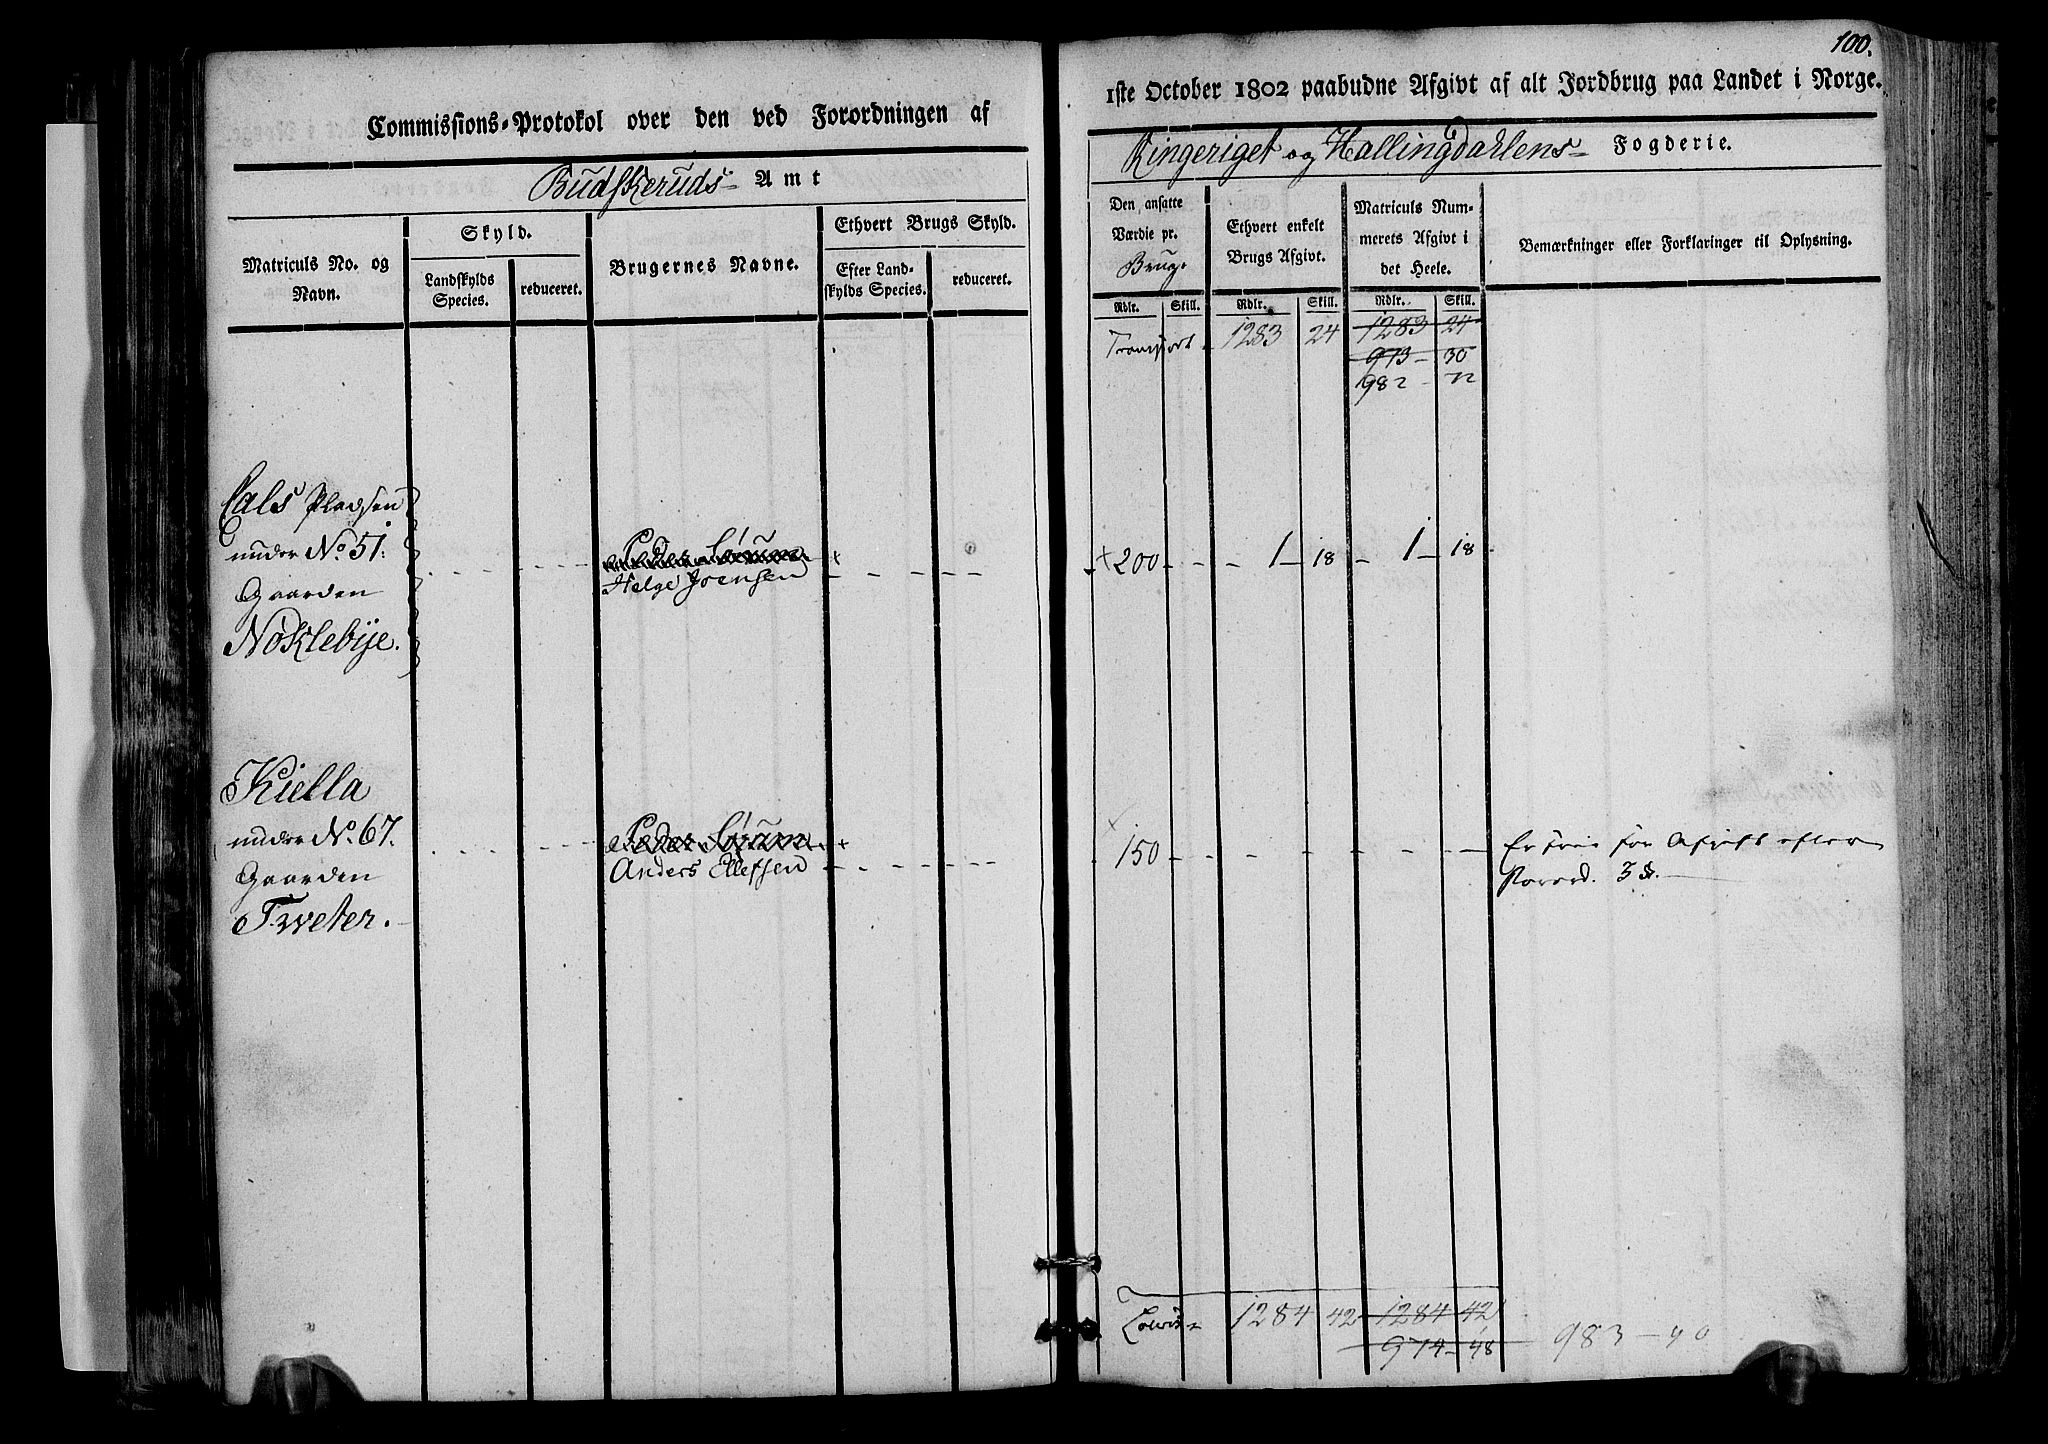 Commissions-Protokol over den ved Forordningen af
Budskeruds- Amt
Matriculs No. og Navn.
Skyld.
Landskylds Species.
reduceret.
Brugernes Navne.
Ethvert Brugs Skyld.
Efter Landskylds Species.
reduceret.
Pladsen
under No 51.
Gaarden
Nøklebye.
Peder Sørum
Helge Joensen
Kiella
under No. 67.
Gaarden
Tweter.
Peder Sørum
Anders Ellefsen
100.
1ste October 1802 paabudne Afgivt af alt Jordbrug paa Landet i Norge.
Ringeriget og Hallingdahlens- Fogderie.
Den ansatte Værdie pr. Brug.
Ethvert enkelt Brugs Afgivt.
Matriculs Nummerets Afgivt i det Heele.
Bemærkninger eller Forklaringer til Oplysning.
Rdlr. Skill. Rdlr. Skill. Rdlr. Skill.
Transport 1283 24 1283 24
973 30
982 72
+ 200 1 18 1 18
150
Er frie for Afgift efter
Forord. 3 §.
1284 42 1284 42
974 48 983 - 90